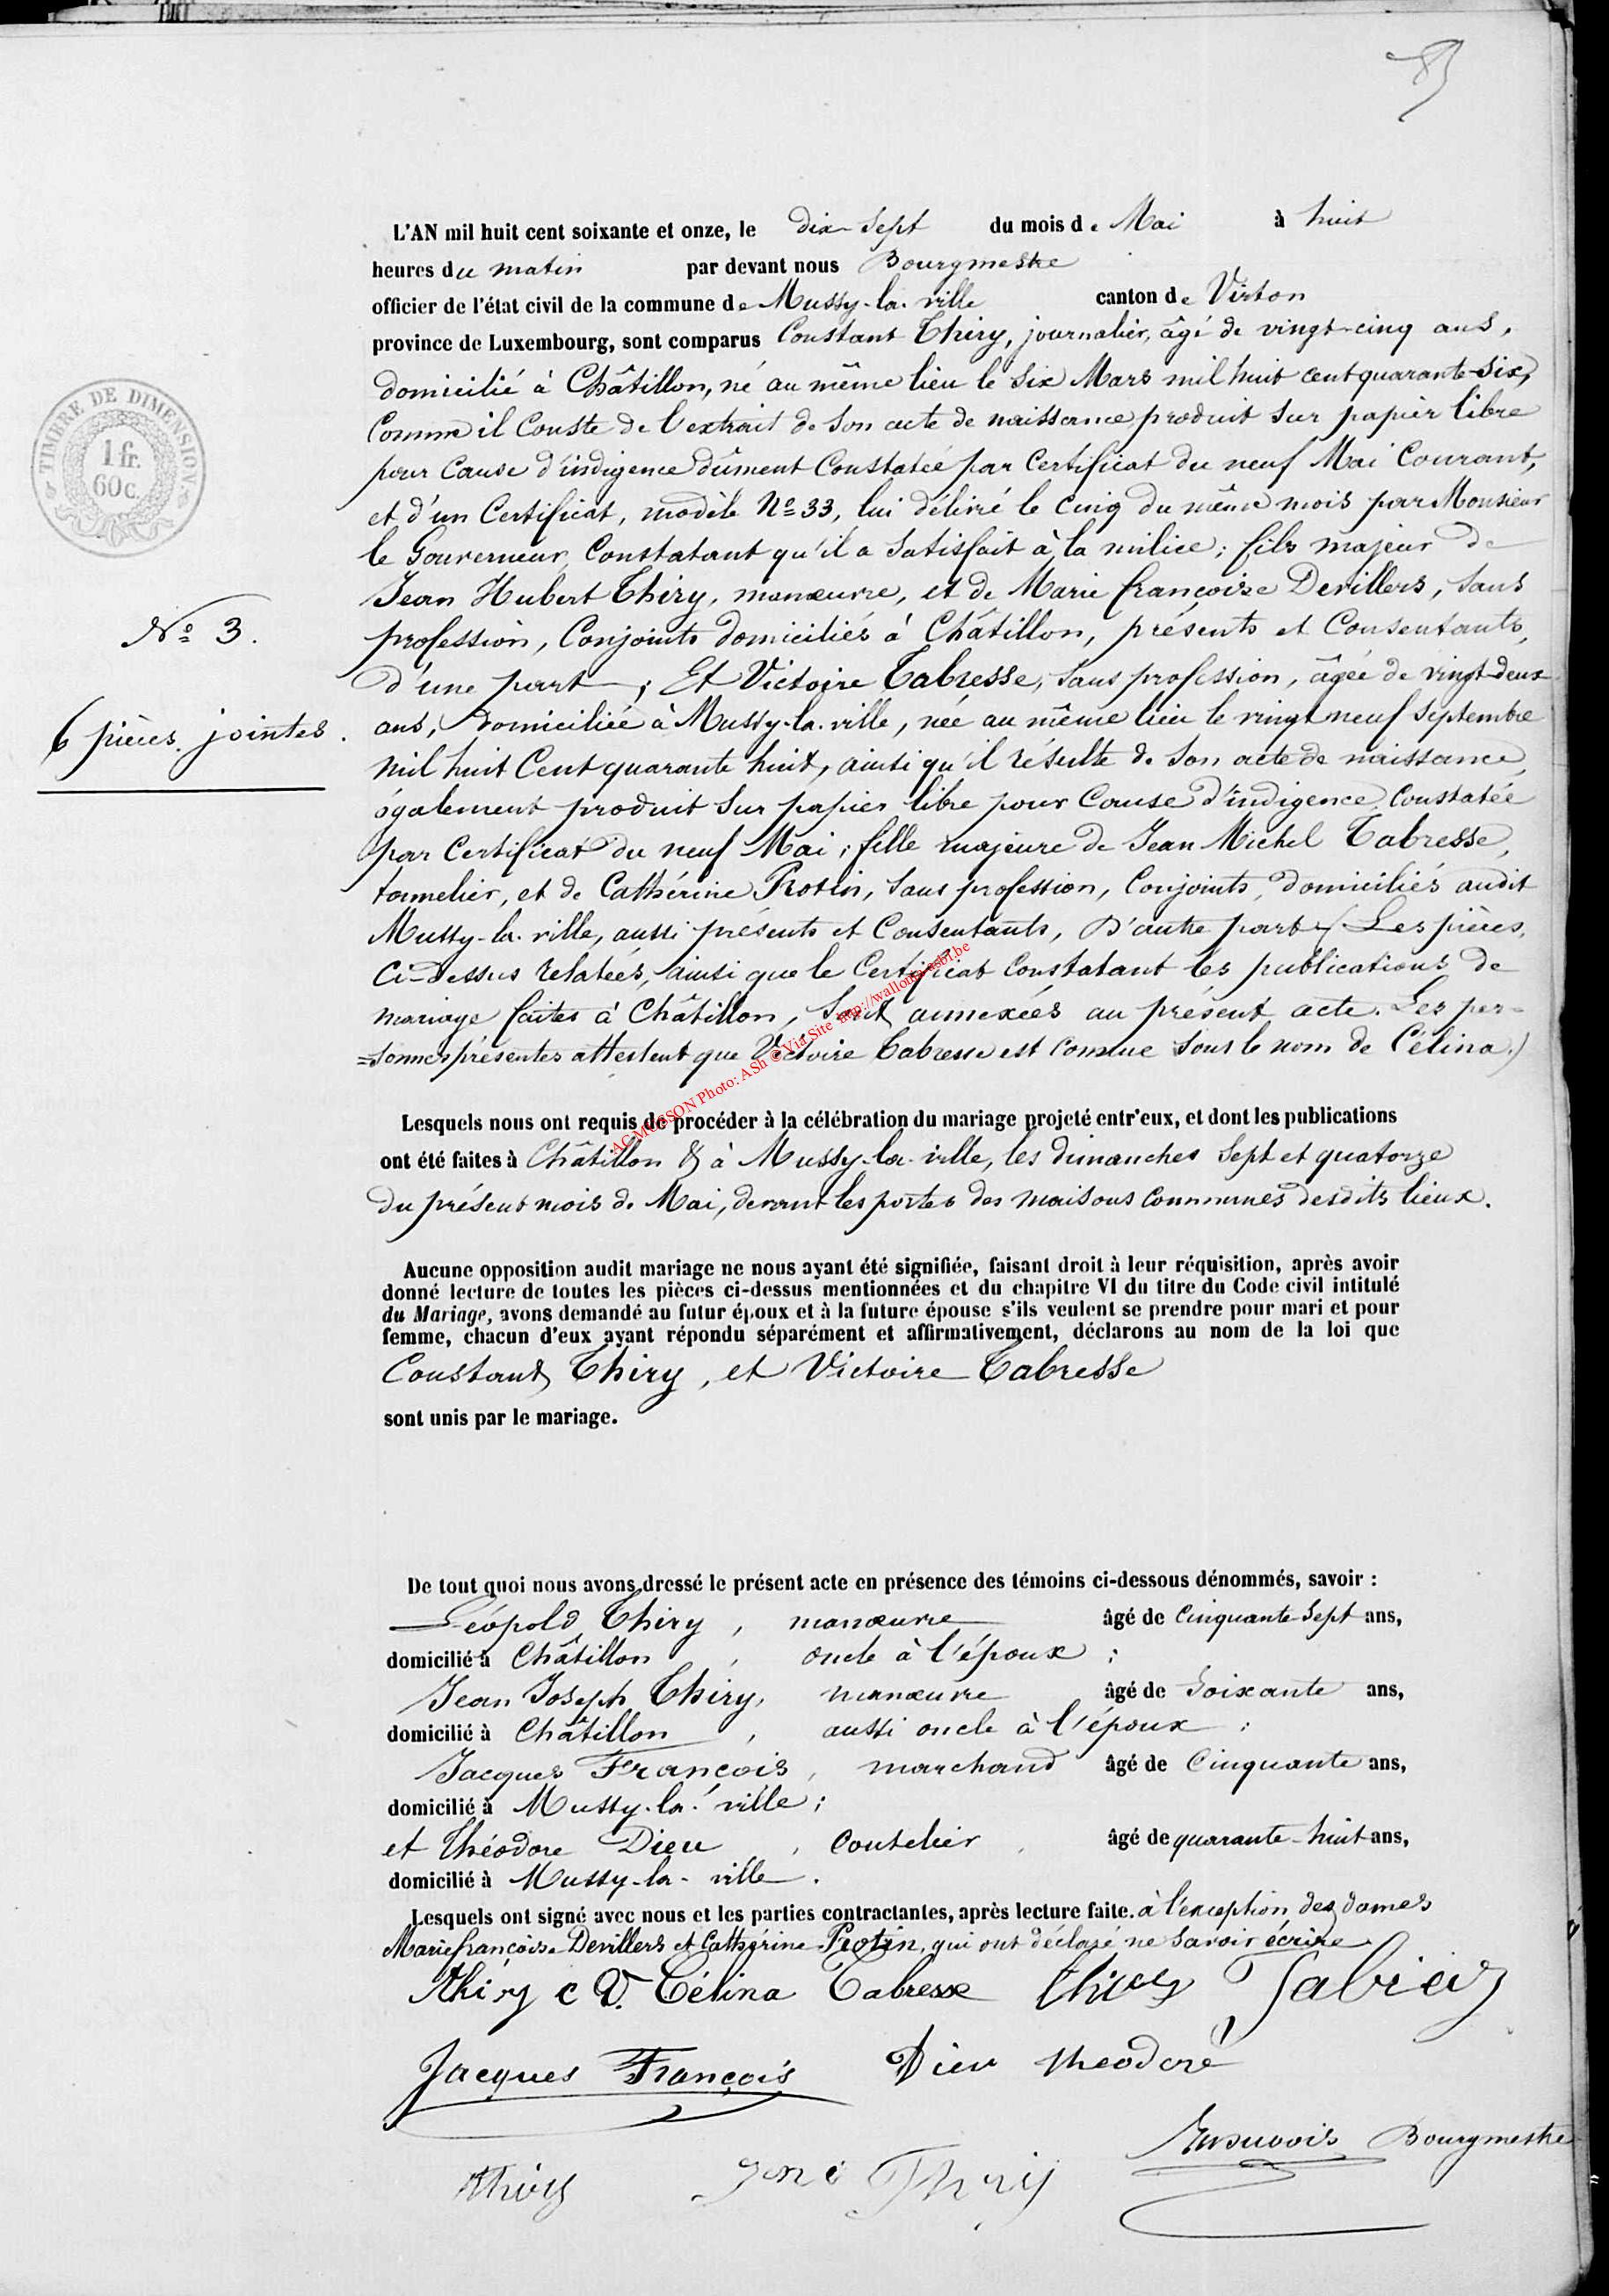 L'AN mil huit cent soixante et onze, le dix-sept du mois de Mai à huit
heures du matin par devant nous Bourgmestre
officier de l'état civil de la commune de Mussy-la-ville canton de Virton
province de Luxembourg, sont comparus Constant Thiry, journalier, âgé de vingt-cinq ans,
domicilié à Châtillon, né au même lieu le six Mars mil huit cent quarante-six,
Comme il Conste de l'extrait de son acte de naissance produit sur papier libre
pour Cause d'indigence dûment Constatée par Certificat du neuf Mai Courant,
et d'un Certificat, modèle No 33, lui délivré le cinq du même mois par Monsieur
le Gouverneur, Constatant qu'il a satisfait à la milice; fils majeur de
Jean Hubert Thiry, manœuvre, et de Marie françoise Devillers, sans
profession, Conjoints domiciliés à Châtillon, présents et Consentants,
d'une part; Et Victoire Tabresse, sans profession, âgée de vingt-deux
ans, domiciliée à Mussy-la-ville, née au même lieu le vingt neuf Septembre
mil huit Cent quarante huit, ainsi qu'il résulte de son acte de naissance,
également produit sur papier libre pour Cause d'indigence Constatée
par Certificat du neuf Mai; fille majeure de Jean Michel Tabresse,
tonnelier, et de Cathérine Protin, sans profession, Conjoints, domiciliés audit
Mussy-la-ville, aussi présents et Consentants, D'autre part (Les pièces,
Ci-dessus relatées, ainsi que le Certificat Constatant les publications de
mariage faites à Châtillon, sont annexées au présent acte. Les per-
=sonnes présentes attestent que Victoire Tabresse est connue sous le nom de Célina.)
No 3.
6 pièces jointes.
TIMBRE DE DIMENSION
1 fr.
60 c.
AC MUSSON Photo: ASh © Via Site http://wallonia-asbl.be
Lesquels nous ont requis de procéder à la célébration du mariage projeté entr'eux, et dont les publications
ont été faites à Châtillon & à Mussy-la-ville, les dimanches sept et quatorze
du présent mois de Mai, devant les portes des maisons Communes desdits lieux.
Aucune opposition audit mariage ne nous ayant été signifiée, faisant droit à leur réquisition, après avoir
donné lecture de toutes les pièces ci-dessus mentionnées et du chapitre VI du titre du Code civil intitulé
du Mariage, avons demandé au futur époux et à la future épouse s'ils veulent se prendre pour mari et pour
femme, chacun d'eux ayant répondu séparément et affirmativement, déclarons au nom de la loi que
Constant Thiry, et Victoire Tabresse
sont unis par le mariage.
De tout quoi nous avons dressé le présent acte en présence des témoins ci-dessous dénommés, savoir :
Léopold Thiry, manœuvre âgé de Cinquante-sept ans,
domicilié à Châtillon, oncle à l'époux;
Jean Joseph Thiry, manœuvre âgé de Soixante ans,
domicilié à Châtillon, aussi oncle à l'époux;
Jacques François, marchand âgé de Cinquante ans,
domicilié à Mussy-la-ville;
et Théodore Dieu, Coutelier, âgé de quarante-huit ans,
domicilié à Mussy-la-ville.
Lesquels ont signé avec nous et les parties contractantes, après lecture faite. à l'exception des dames
Marie françoise Devillers et Cathérine Protin, qui ont déclaré ne savoir écrire
Thiry c V. Célina Tabresse Thiry
Jacques François Dieu théodore
Bourgmestre
Thiry Thiry